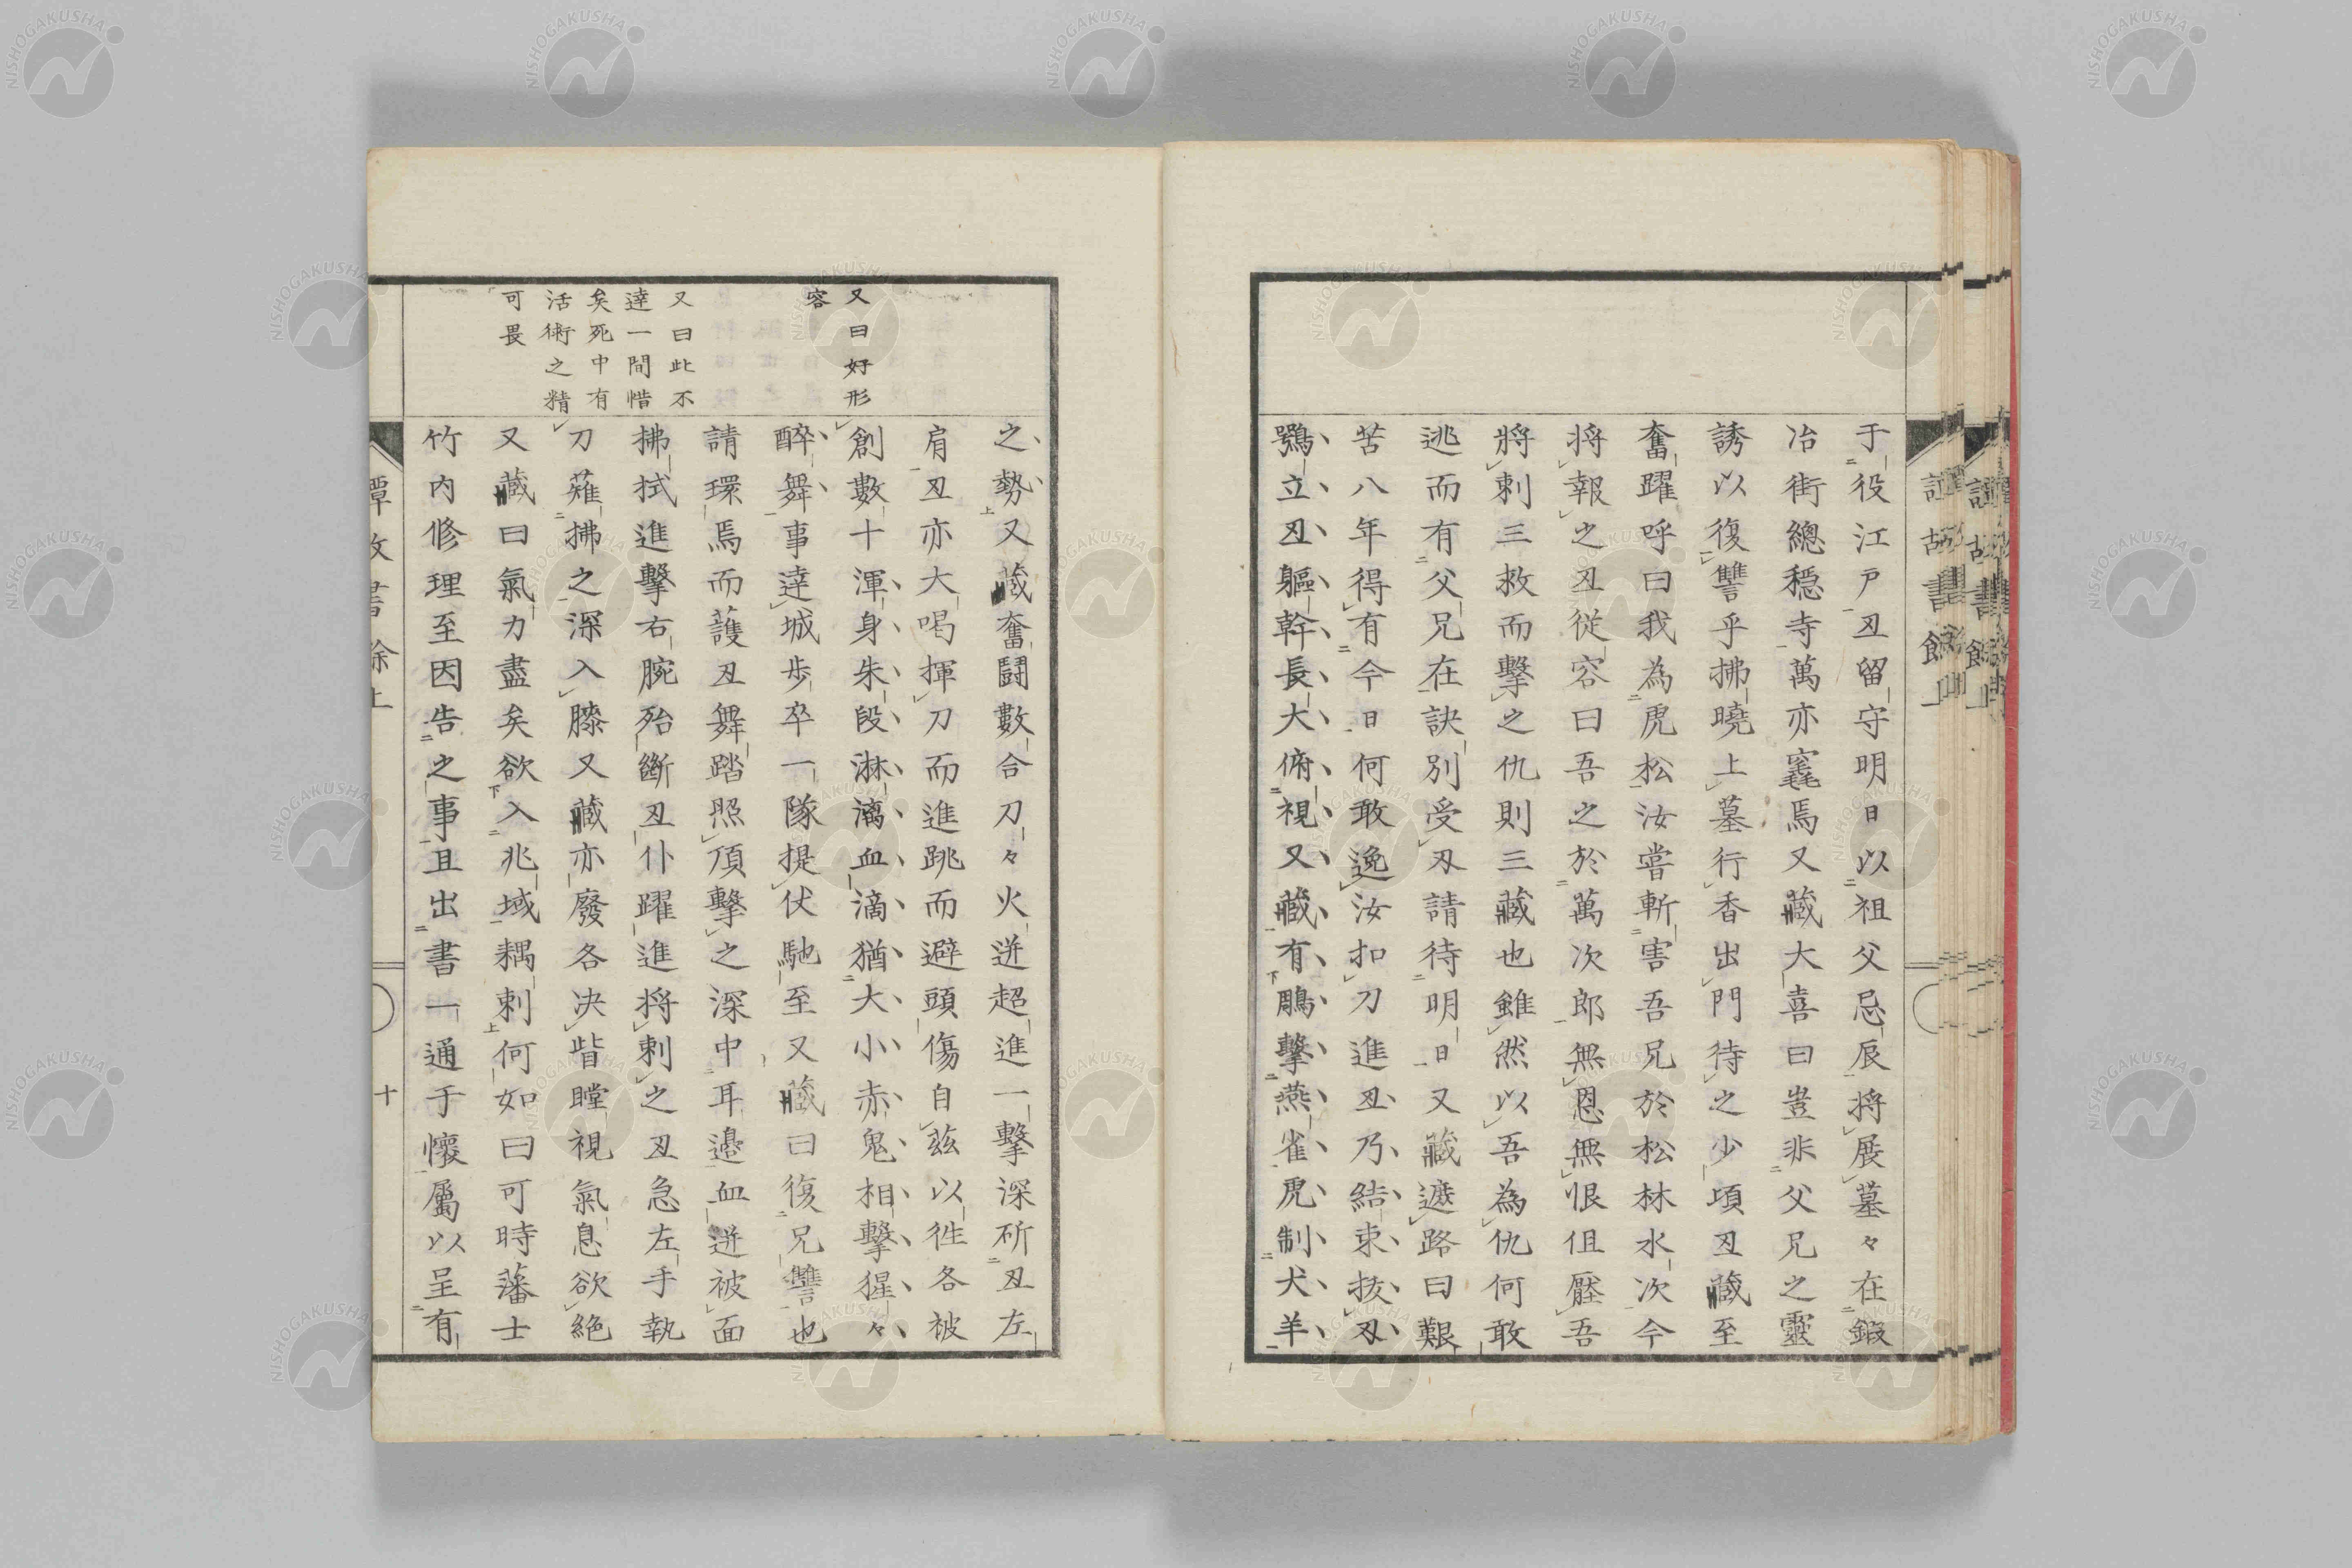 于役江戸丑留守明日以祖父忌辰将展墓々在鍛
冶街總穏寺萬亦窆焉又藏大喜曰豈非父兄之靈
誘以復讐乎拂曉上墓行香出門待之少頃丑藏至
奮躍呼曰我為虎松汝嘗斬害吾兄於松林水次今
将報之丑従容曰吾之於萬次郎無恩無恨伹壓吾
將刺三救而擊之仇則三藏也雖然以吾為仇何敢
逃而有父兄在訣別受刄請待明日又藏遮路曰艱
苦八年得有今日何敢逸汝扣刀進丑乃結束抜刄
鶚立丑軀幹長大俯視又藏有鵰擊燕雀虎制犬羊
之勢又藏奮鬪數合刀々火迸超進一擊深斫丑左
肩丑亦大喝揮刀而進跳而避頭傷自茲以徃各被
創數十渾身朱段淋漓血滴猶大小赤鬼相擊猩々
醉舞事達城歩卒一隊提伏馳至又藏曰復兄讐也
請環焉而護丑舞踏照頂擊之深中耳邉血迸被面
拂拭進擊右腕殆斷丑仆躍進将刺之丑急左手執
刀薙拂之深入膝又藏亦廢各决眥瞠視氣息欲絶
又藏曰氣力盡矣欲入兆域耦刺何如曰可時藩士
竹内修理至因告之事且出書一通于懐屬以呈有
又曰好形
容
又曰此不
達一間惜
矣死中有
活術之精
可畏
譚故書餘上
十